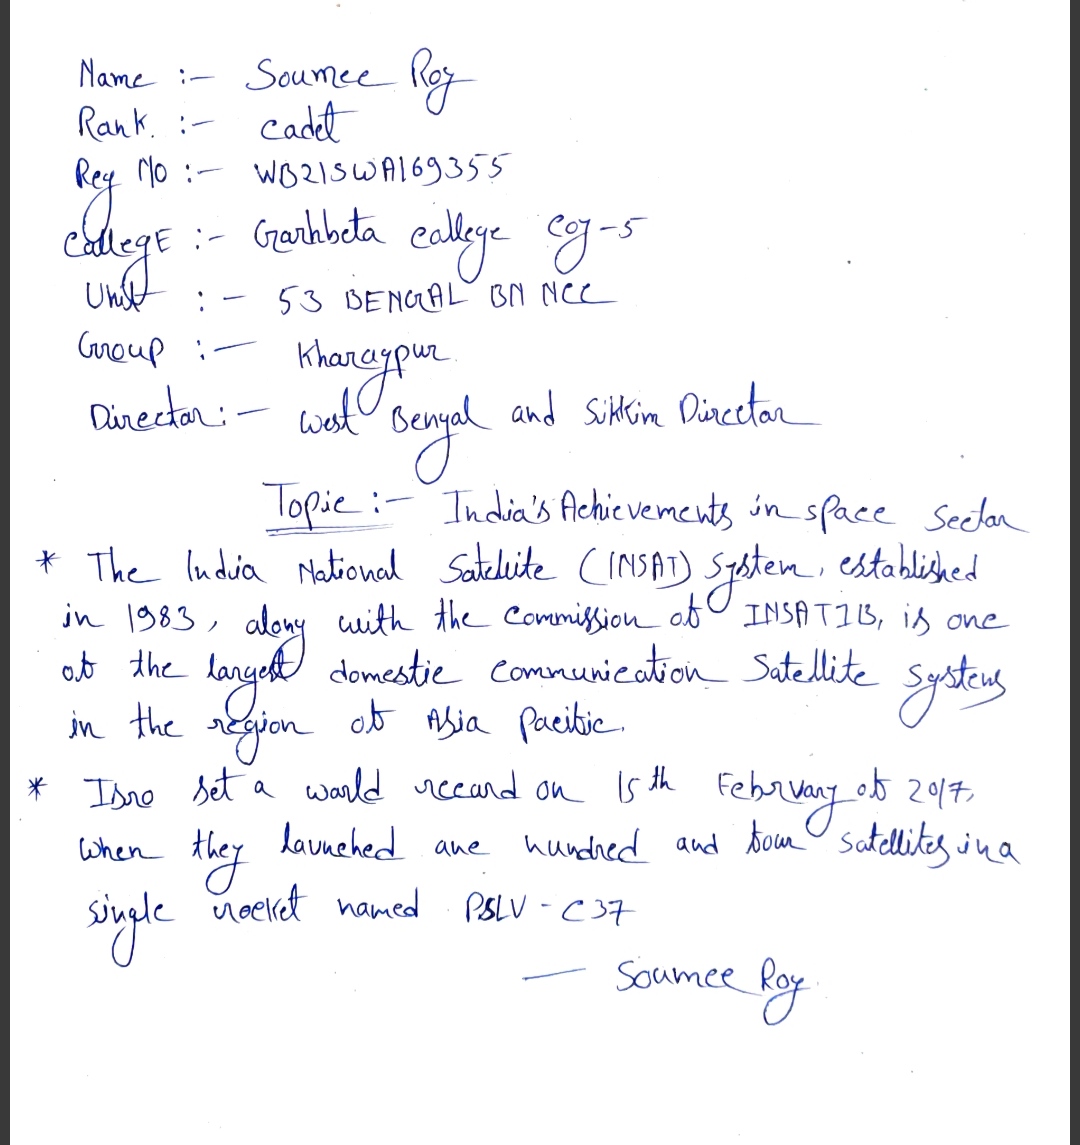 Name :- Soumee Roy
Rank. :- cadet
Reg No :- WB21SWA169355
CollegE :- Garhbeta college coy-5
Unit :- 53 BENGAL BN NCC
Group :- Kharagpur.
Director :- West Bengal and Sikkim Director
Topic :- India's Achievements in space Sector
* The India National Satelite (INSAT) System, established
in 1983, along with the Commission of INSAT 1B, is one
of the largest domestic communication Satellite systems
in the region of Asia Pacific.
* Isro set a world record on 15th February of 2017,
When they launched one hundred and four satellites in a
single rocket named PSLV - C37
— Soumee Roy.